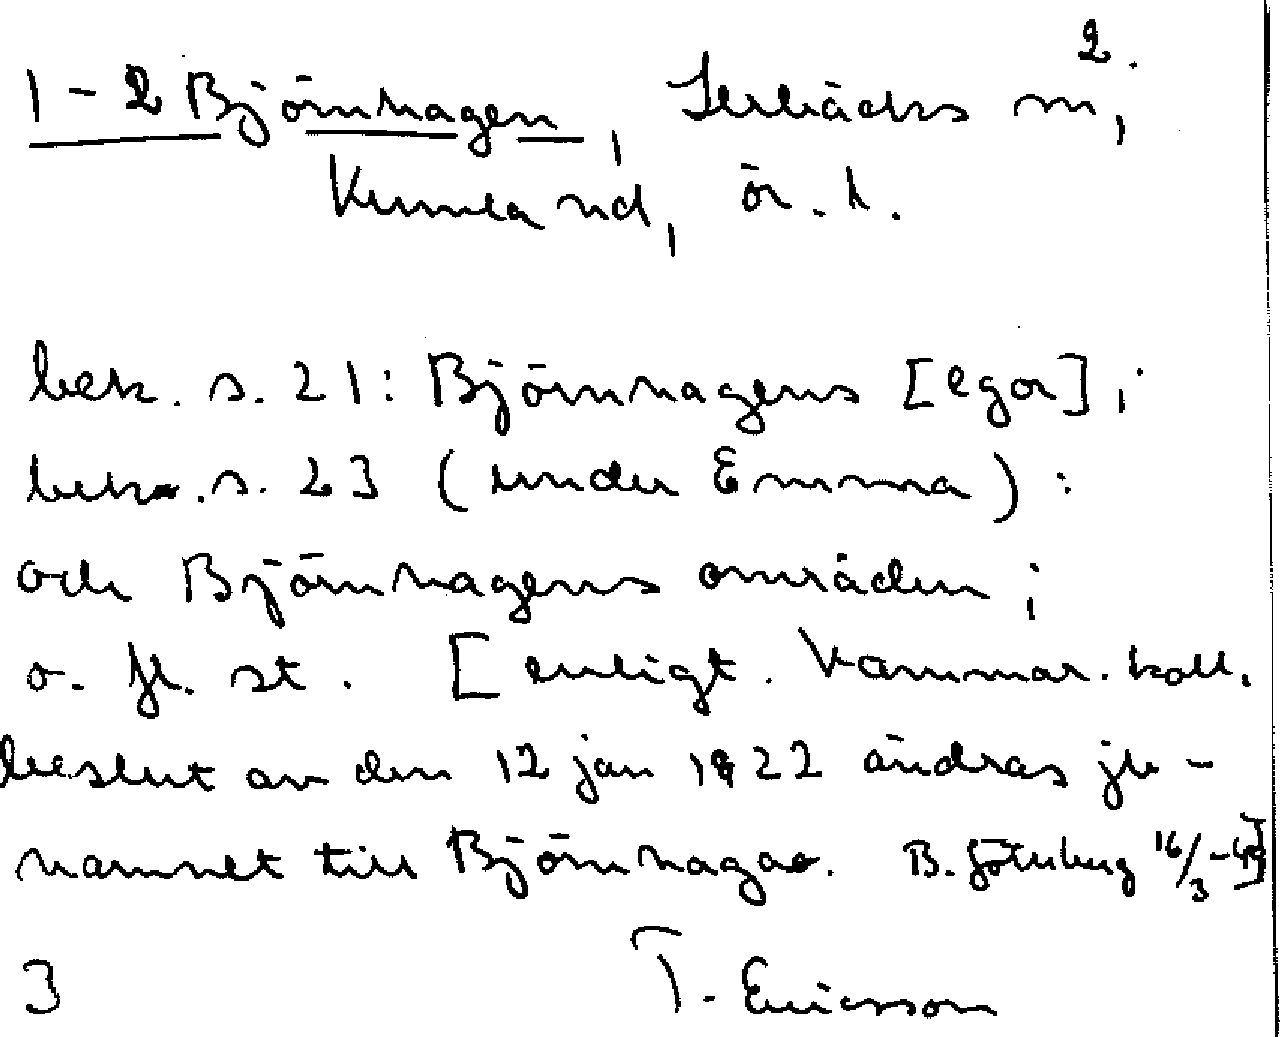 2.
1-2 Björnhagen, Lerbäcks sn,
Kumla hd, ör. l.
bek. s. 21: Björnhagens [egor];
bek. s. 23 (under Emma):
och Björnhagens områden;
o. fl. st. [enligt. Kammar. koll.
beslut av den 12 jan 1922 ändras jb-
namnet till Björnhagar. B. Göteberg 16/3-49]
3 T. Ericsson